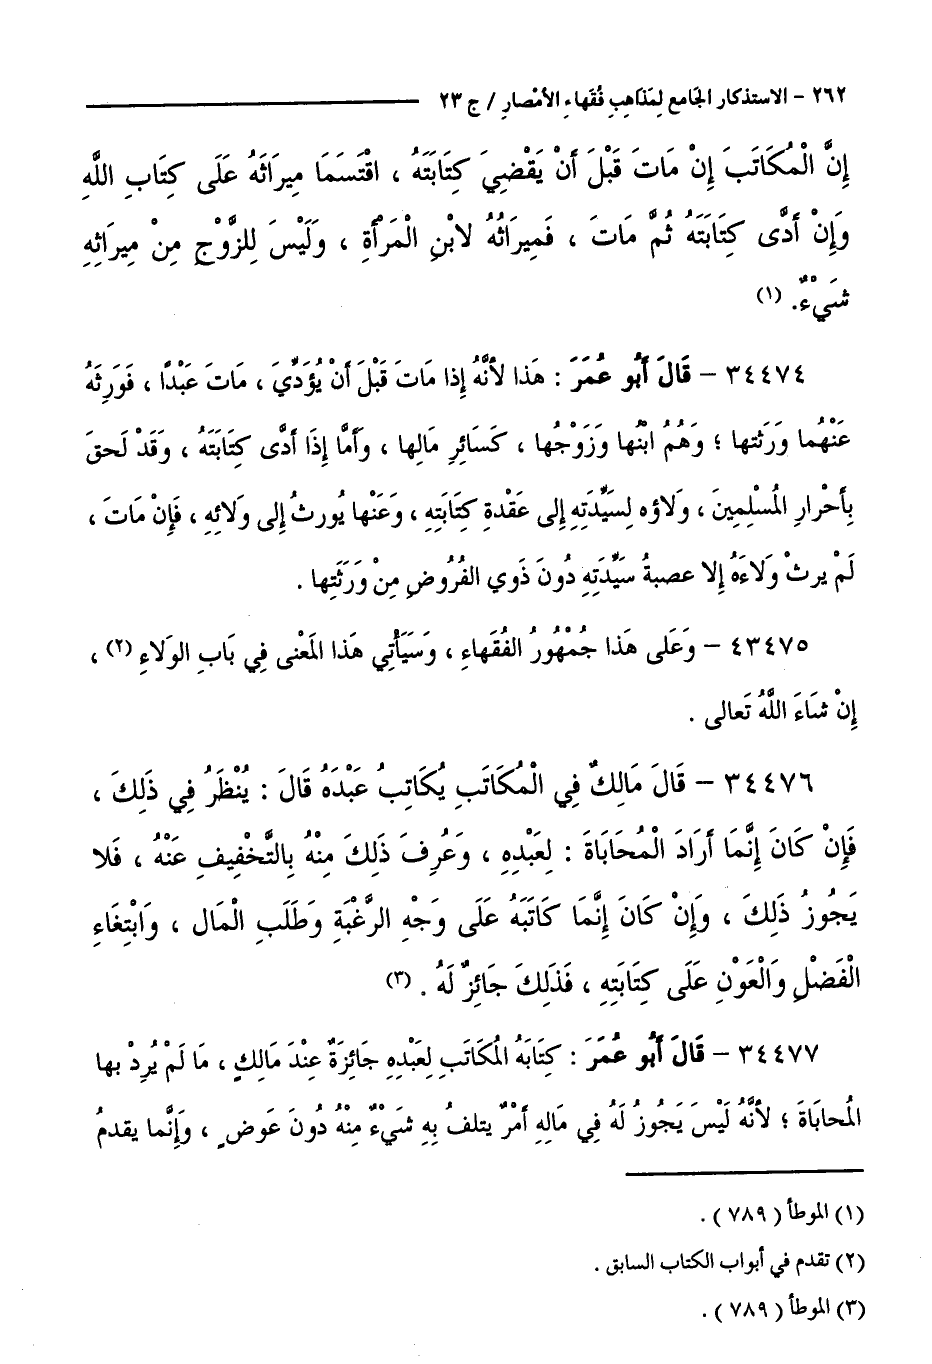 ٢٦٢ - الاستذكار الجَامع لِمَذَاهِبِ فُقَهاءِ الأمْصارِ / ج ٢٣
إِنَّ الْمُكَاتَبَ إِنْ مَاتَ قَبْلَ أَنْ يَقْضِيَ كِتَابَتَهُ ، اقْتَسَمَا مِيرَاثَهُ عَلَى كِتَابِ اللَّهِ
وَإِنْ أَدَّى كِتَابَتَهُ ثُمَّ مَاتَ ، فَمِيرَاثُهُ لابْنِ الْمَرْأَةِ ، وَلَيْسَ لِلزَّوْجِ مِنْ مِيرَاثِهِ
شَيْءٌ. (١)
٣٤٤٧٤ - قَالَ أَبُو عُمَرَ : هَذا لأَنَّهُ إِذا مَاتَ قَبْلَ أَنْ يُؤَدِّيَ ، مَاتَ عَبْدًا ، فَوَرِثَهُ
عَنْهُما وَرَثَتها ؛ وَهُمُ ابْنُها وَزَوْجُها ، كَسَائِرِ مَالِها ، وَأَمَّا إِذَا أَدَّى كِتَابَتَهُ ، وَقَدْ لَحقَ
بِأَحْرارِ المُسْلِمِينَ ، وَلاؤه لِسَيِّدَتِهِ إِلى عَقْدةِ كِتَابَتِهِ ، وَعَنْها يُورثُ إِلى وَلائِهِ ، فَإِنْ مَاتَ ،
لَمْ يرثْ وَلاءَهُ إِلا عصبةُ سَيِّدَتِهِ دُونَ ذَوي الفُرُوضِ مِنْ وَرَثَتِها .
٤٣٤٧٥ - وَعَلى هَذا جُمْهُورُ الفُقَهاءِ ، وَسَيَأْتِي هَذا المَعْنى فِي بَابِ الوَلاءِ (٢) ،
إِنْ شَاءَ اللَّهُ تَعالى .
٣٤٤٧٦ - قَالَ مَالِكٌ فِي الْمُكَاتَبِ يُكَاتِبُ عَبْدَهُ قَالَ : يُنْظَرُ فِي ذَلِكَ ،
فَإِنْ كَانَ إِنَّمَا أَرَادَ الْمُحَابَاةَ : لِعَبْدِهِ ، وَعُرِفَ ذَلِكَ مِنْهُ بِالتَّخْفِيفِ عَنْهُ ، فَلا
يَجُوزُ ذَلِكَ ، وَإِنْ كَانَ إِنَّمَا كَاتَبَهُ عَلَى وَجْهِ الرَّغْبَةِ وَطَلَبِ الْمَال ، وَابْتِغَاءِ
الْفَضْلِ وَالْعَوْنِ عَلَى كِتَابَتِهِ ، فَذَلِكَ جَائِزٌ لَهُ . (٣)
٣٤٤٧٧ - قَالَ أَبُو عُمَرَ : كِتَابَهُ المُكَاتَبِ لِعَبْدِهِ جَائِزَةٌ عِنْدَ مَالِكٍ ، مَا لَمْ يُرِدْ بها
المُحابَاةَ ؛ لأَنَّهُ لَيْسَ يَجُوزُ لَهُ فِي مَالِهِ أَمْرٌ يتلفُ بِهِ شَيْءٌ مِنْهُ دُونَ عَوضٍ ، وَإِنَّما يقدمُ
(١) الموطأ ( ٧٨٩ ) .
(٢) تقدم في أبواب الكتاب السابق .
(٣) الموطأ ( ٧٨٩ ) .